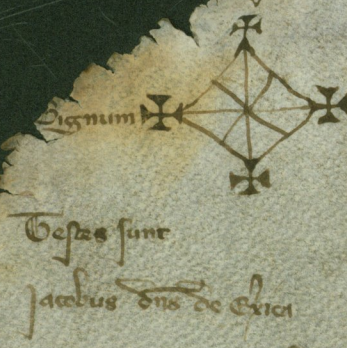 Signum
Testes sunt
Jacobus dns de Exrica